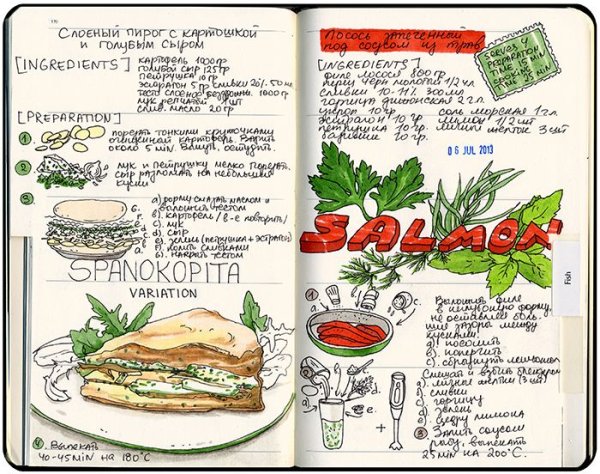 Слоеный пирог с картошкой
и голубым сыром
[INGREDIENTS]
картофель 1000 гр
голубой сыр 125 гр
петрушка 10 гр
эстрагон 5 гр сливки 20% 50 мл
тесто слоеное бездрожж. 1000 г
лук репчатый 1 шт
слив. масло 20 гр
[PREPARATION]
1
порезать тонкими кружочками
очищенный картофель. Варить
около 5 min. Вынуть, остудить.
2
лук и петрушку мелко порезать.
сыр разломать на небольшие
куски
3
а) форму смазать маслом и
выложить тестом
б). картофель / б-е повторить /
в). лук
г). сыр
д). зелень (петрушка + эстрагон)
е). полить сливками
б). накрыть тестом
SPANOKOPITA
VARIATION
4 Выпекать
40-45 min на 180°C
Лосось запеченный
под соусом из трав
SERVES 4
PREPARATION
TIME 15 MIN
COOKING
TIME 25 MIN
[INGREDIENTS]
филе лосося 800 гр
перец черн молотый 1/2 ч.л
сливки 10-11% 300 мл
горчица дижонская 2 г.л.
укроп 10 гр
эстрагон 10 гр
петрушка 10 гр.
базилик 10 гр.
соль морская 1 г.л.
лимон 1/2 шт
яичн желток 3 шт
06 JUL 2013
SALMON
Fish
1
a.
b.
c.
Выложить филе
в неглубокую форму,
не оставляя боль-
шие зазоры между
кусками.
а) посолить
б). поперчить
с). сбрызнуть лимоном
Смешай и взбить блендером
а). яичные желтки (3 шт)
б). сливки
с). горчицу
д). зелень
е). цедру лимона
3 Залить соусом
рыбу, выпекать
25 min на 200°C.